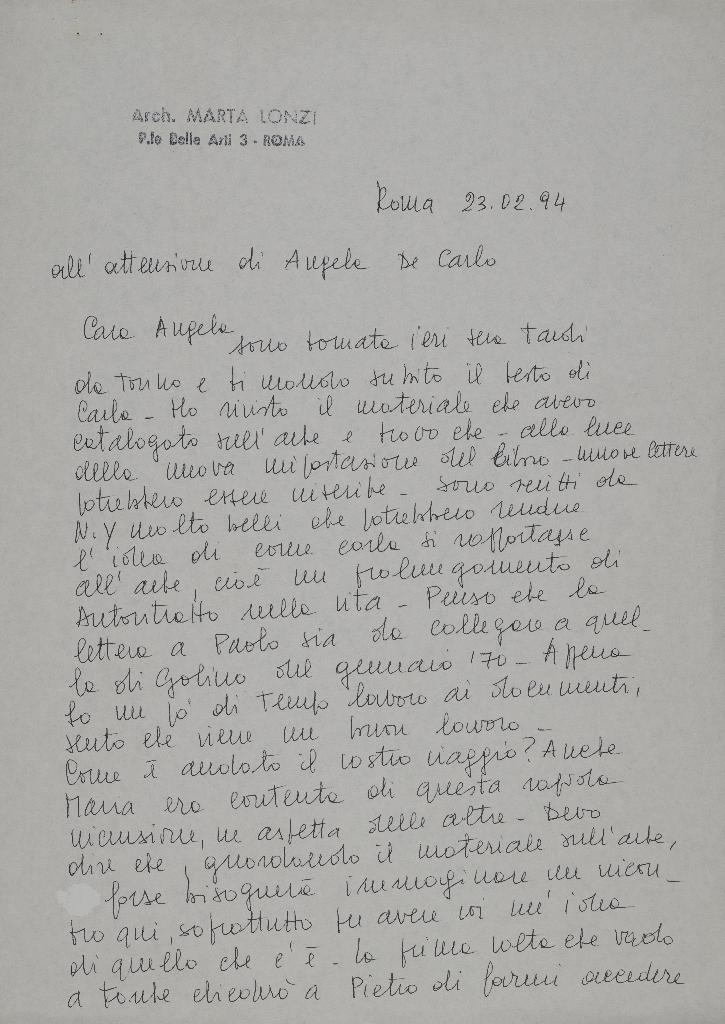 Arch. MARTA LONZI
P.le Belle Arti 3 - ROMA
Roma 23.02.94
all'attenzione di Angela De Carlo
Cara Angela
sono tornata ieri sera tardi
da Torino e ti mando subito il testo di
Carla - Ho rivisto il materiale che avevo
catalogato sull'arte e trovo che - alla luce
della nuova impostazione del libro - nuove lettere
potrebbero essere inserite - Sono scritti da
N.Y molto belli che potrebbero rendere
l'idea di come Carla si rapportasse
all'arte, cioè un prolungamento di
Autoritratto nella vita - Penso che la
lettera a Paolo sia da collegare a quel-
la di Golino del gennaio '70 - Appena
ho un po' di tempo lavoro ai documenti,
sento che viene un buon lavoro -
Come è andato il vostro viaggio? Anche
Maria era contenta di questa rapida
riunione, ne aspetta delle altre - Devo
dire che, guardando il materiale sull'arte,
forse bisognerà immaginare un incon-
tro qui, soprattutto per avere voi un'idea
di quello che c'è - La prima volta che vado
a fonte chiederò a Pietro di farmi accedere